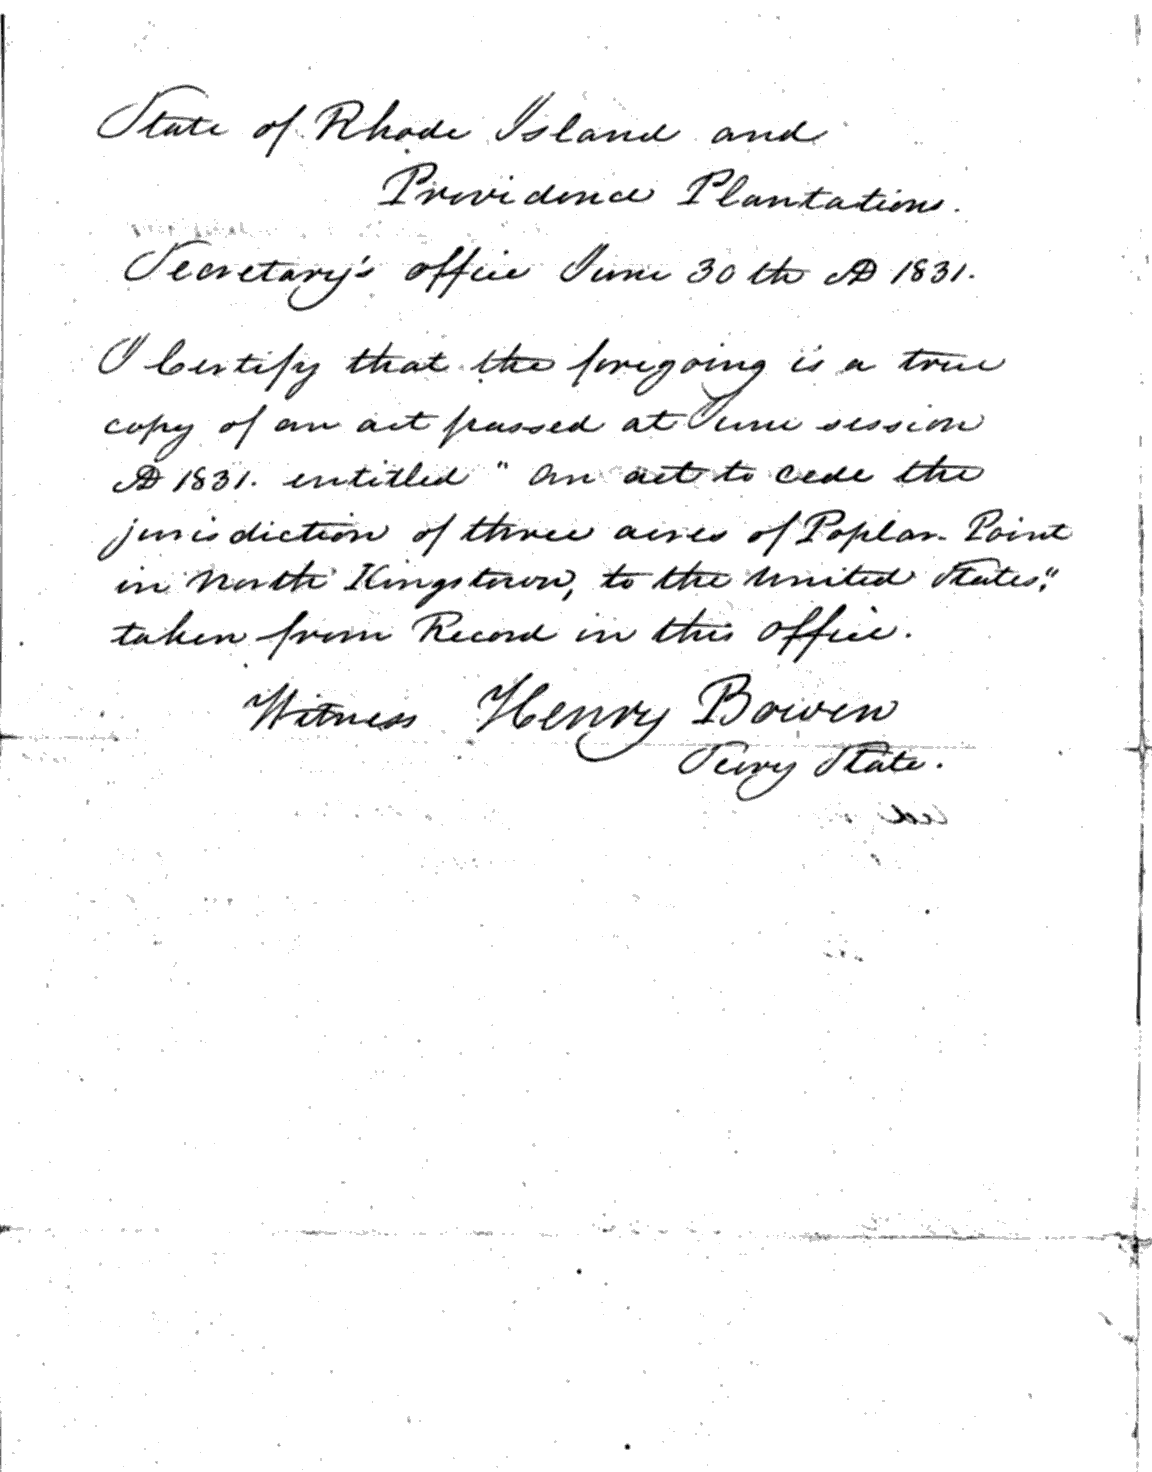 State of Rhode Island and
Providence Plantations.
Secretary's office June 30th AD 1831.
I Certify that the foregoing is a true
copy of an act passed at June session
AD 1831. entitled "An act to cede the
jurisdiction of three acres of Poplar Point
in North Kingstown, to the United States,"
taken from Record in this office.
Witness Henry Bowen
Secry State.